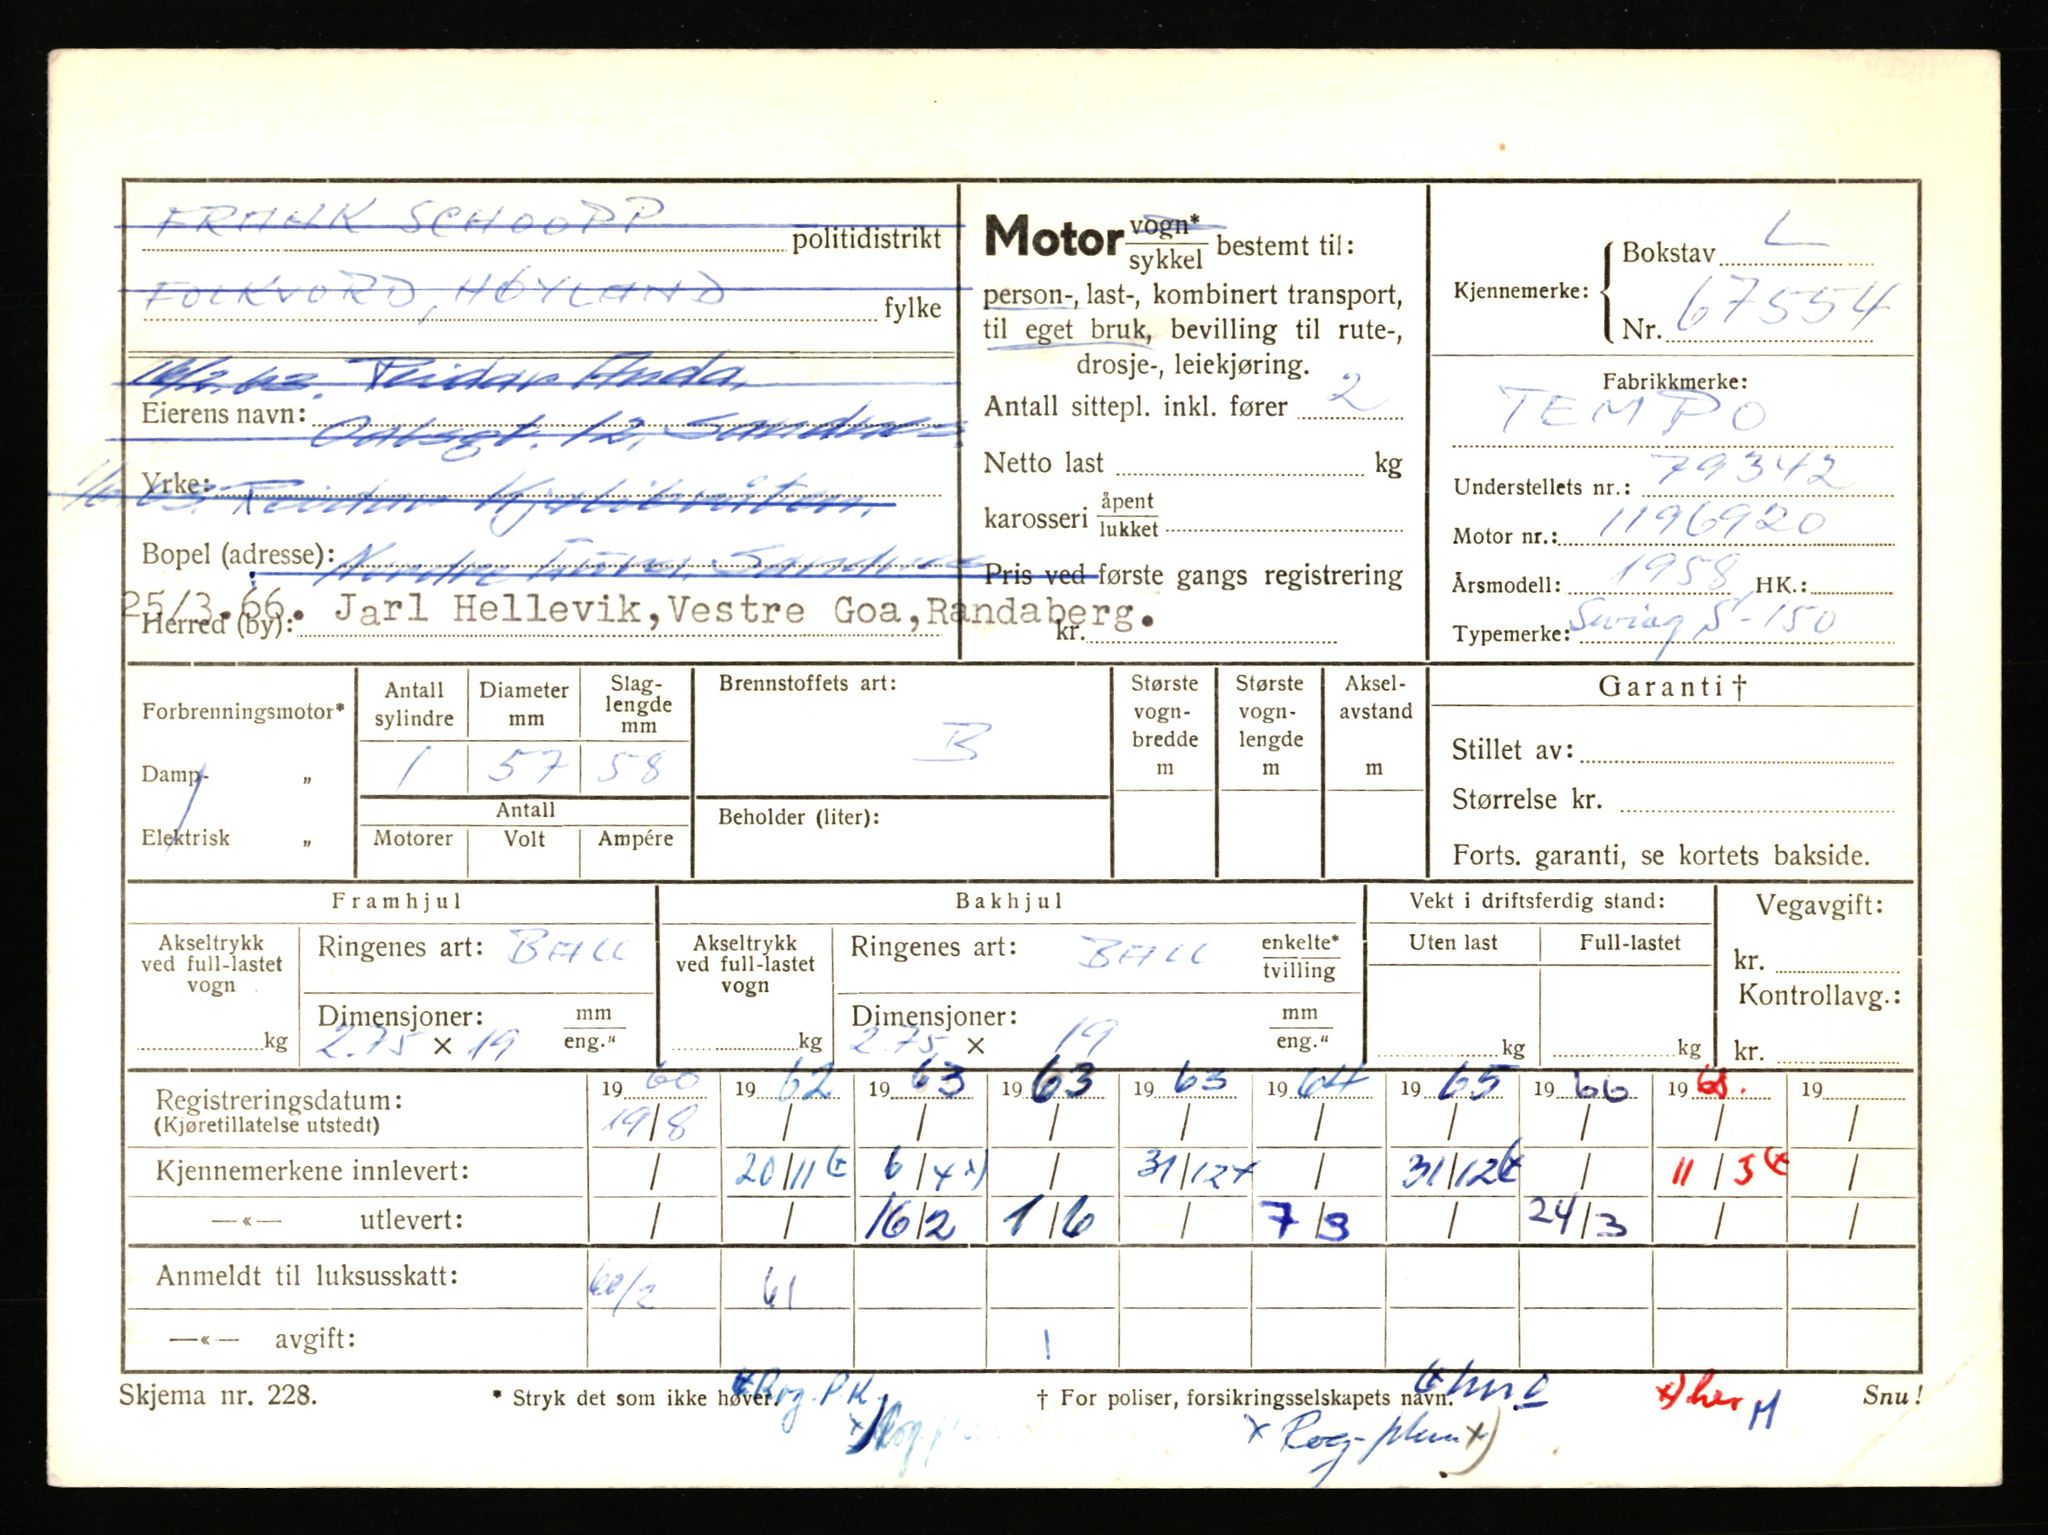 FRANK SCHOOPP politidistrikt
FOLKVORD, HØYLAND fylke
16/2.63. Reidar Anda,
Eierens navn:
Oalsgt. 12, Sandnes.
Yrke:
1/6.63. Reidar
Bopel (adresse): Nordre Sandnes
25/3.66. Jarl Hellevik, Vestre Goa, Randaberg.
Herred (by):
Motor vogn* / sykkel bestemt til:
person-, last-, kombinert transport,
til eget bruk, bevilling til rute-,
drosje-, leiekjøring.
Antall sittepl. inkl. fører 2
Netto last kg
karosseri åpent / lukket
Pris ved første gangs registrering
kr.
Kjennemerke:
Bokstav L
Nr. 67554
Fabrikkmerke:
TEMPO
Understellets nr.: 79342
Motor nr.: 1196920
Årsmodell: 1958 HK.:
Typemerke: Swing S-150
Forbrenningsmotor*
Damp- „
Elektrisk „
Antall sylindre
Diameter mm
Slag-lengde mm
1 57 58
Antall
Motorer Volt Ampére
Brennstoffets art:
B
Beholder (liter):
Største vogn-bredde m
Største vogn-lengde m
Aksel-avstand m
Garanti †
Stillet av:
Størrelse kr.
Forts. garanti, se kortets bakside.
Framhjul
Akseltrykk ved full-lastet vogn
kg
Ringenes art: BALL
Dimensjoner: mm / eng."
2.75 × 19
Bakhjul
Akseltrykk ved full-lastet vogn
kg
Ringenes art: BALL enkelte* / tvilling
Dimensjoner: mm / eng."
2.75 × 19
Vekt i driftsferdig stand:
Uten last Full-lastet
kg kg
Vegavgift:
kr.
Kontrollavg.:
kr.
Registreringsdatum: 1960 1962 1963 1963 1963 1964 1965 1966 1968. 19
(Kjøretillatelse utstedt) 19/8 / / / / / / / / /
Kjennemerkene innlevert: / 20/11 (× 6/4 ×) / 31/12 × / 31/12 (× / 11/3 (× /
—«— utlevert: / / 16/2 1/6 / 7/3 / 24/3 / /
Anmeldt til luksusskatt: 60/2 61
—«— avgift:
Skjema nr. 228.
* Stryk det som ikke høver.
† For poliser, forsikringsselskapets navn.
Snu!
× Rog. P.K.
×) Rog.
× Rog-
×)
×) her M